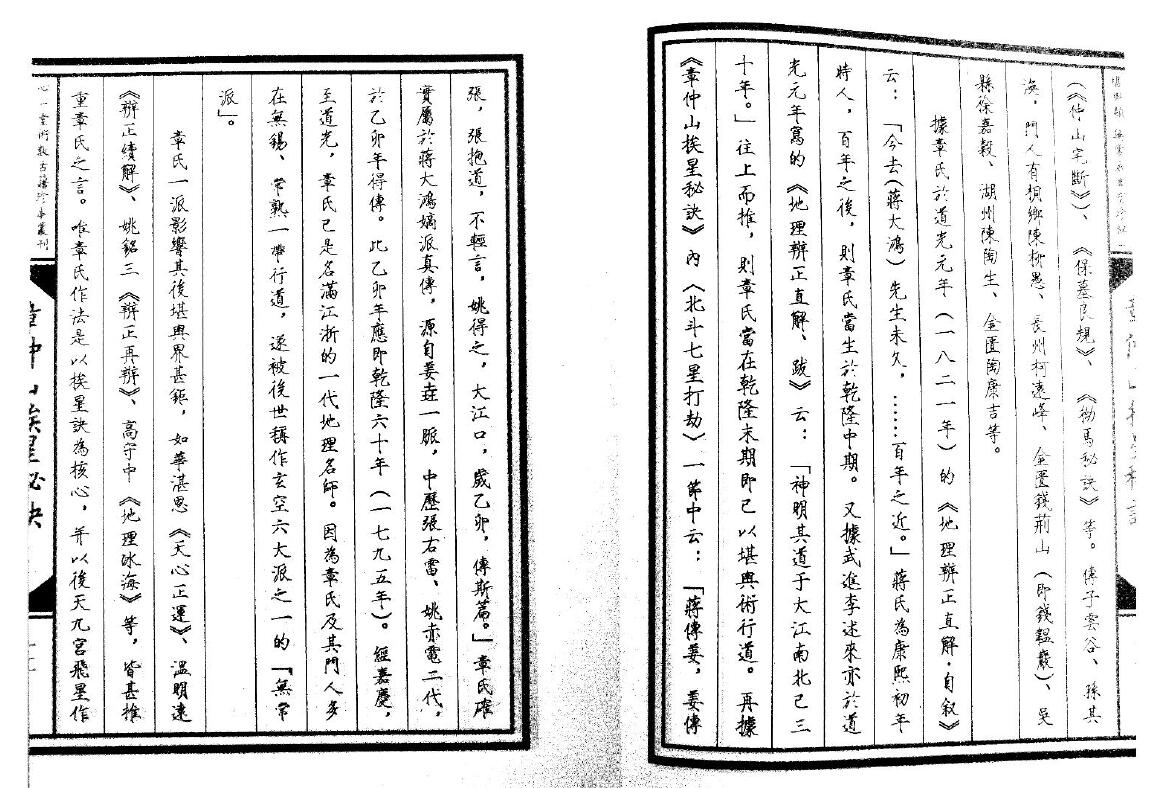 (《仲山宅斷》)、《保墓良規》、《幼馬秘訣》等。傳子雲谷、孫其
渙，門人有桐鄉陳柳愚、長州柯遠峰、金匱錢荊山（即錢韞巖）、吳
縣徐嘉穀、湖州陳陶生、金匱陶康吉等。
據章氏於道光元年（一八二一年）的《地理辨正直解·自叙》
云：「今去(蔣大鴻）先生未久，……百年之近。」蔣氏為康熙初年
時人，百年之後，則章氏當生於乾隆中期。又據武進李述來亦於道
光元年寫的《地理辨正直解、跋》云：「神明其道于大江南北已三
十年。」往上而推，則章氏當在乾隆末期即已以堪輿術行道。再據
《章仲山挨星秘訣》內〈北斗七星打劫〉一節中云：「蔣傳姜，姜傳
張，張抱道，不輕言，姚得之，大江口，歲乙卯，傳斯篇。」章氏確
實屬於蔣大鴻嫡派真傳，源自姜垚一脈，中歷張右雷、姚赤電二代，
於乙卯年得傳。比乙卯年應即乾隆六十年（一七九五年）。經嘉慶，
至道光，章氏已是名滿江浙的一代地理名師。因為章氏及其門人多
在無錫、常熟一帶行道，遂被後世稱作玄空六大派之一的「無常
派」。
章氏一派影響其後堪輿界甚鉅，如華湛恩《天心正運》、溫明遠
《辨正續解》、姚銘三《辨正再辨》、高守中《地理冰海》等，皆甚推
重章氏之言。唯章氏作法是以挨星訣為核心，并以後天九宮飛星作
心一堂術數古籍珍本叢刊
章仲山挨星秘訣